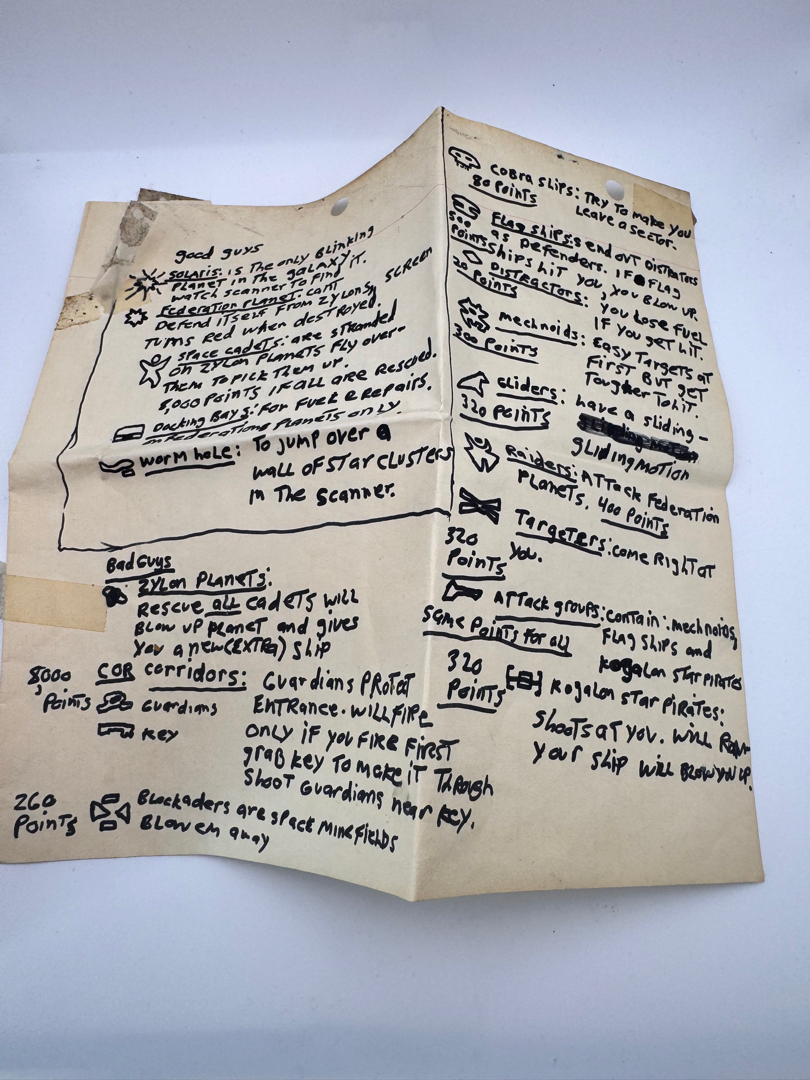 good guys
SOLARIS: IS THE ONLY BLINKING
PLANET IN THE GALAXY
WATCH SCANNER TO FIND IT.
FEDERATION PLANET: CANT
DEFEND ITSELF FROM ZYLONS, SCREEN
TURNS RED WHEN DESTROYED.
SPACE CADETS: ARE STRANDED
ON ZYLON PLANETS FLY OVER-
THEM TO PICK THEM UP.
5,000 POINTS IF ALL ARE RESCUED.
DOCKING BAYS: FOR FUEL & REPAIRS.
IN FEDERATIONS PLANETS ONLY.
WORM HOLE: TO JUMP OVER A
WALL OF STAR CLUSTERS
IN THE SCANNER.
Bad Guys
ZYLON PLANETS:
RESCUE ALL CADETS WILL
BLOW UP PLANET AND GIVES
YOU A NEW (EXTRA) SHIP
8,000 POINTS
COR corridors: GUARDIANS PROTET
ENTRANCE. WILL FIRE
ONLY IF YOU FIRE FIRST
GUARDIANS
KEY
grab KEY TO MAKE IT THROUGH
SHOOT GUARDIANS NEAR KEY.
260 POINTS
Blockaders are space MINEFIELDS
BLOW EM away
COBRA SHIPS: TRY TO MAKE YOU
80 POINTS LEAVE A SECTOR.
FLAG SHIPS: SEND OUT DISTRATORS
500 AS DEFENDERS. IF FLAG
POINTS SHIPS HIT YOU, YOU BLOW UP.
DISTRACTORS: YOU LOSE FUEL
20 POINTS IF YOU GET HIT.
MECHNOIDS: EASY TARGETS AT
300 POINTS FIRST BUT GET
TOUGHER TO HIT.
GLIDERS: HAVE A SLIDING-
320 POINTS
GLIDING MOTION
RAIDERS: ATTACK FEDERATION
PLANETS. 400 POINTS
TARGETERS: COME RIGHT AT
320 YOU.
POINTS
ATTACK GROUPS: CONTAIN: MECHNOIDS,
SAME POINTS FOR ALL FLAG SHIPS AND
KOGALON STAR PIRATES
320 POINTS
KOGALON STAR PIRATES:
SHOOTS AT YOU. WILL RAM
YOUR SHIP WILL BLOW YOU UP.